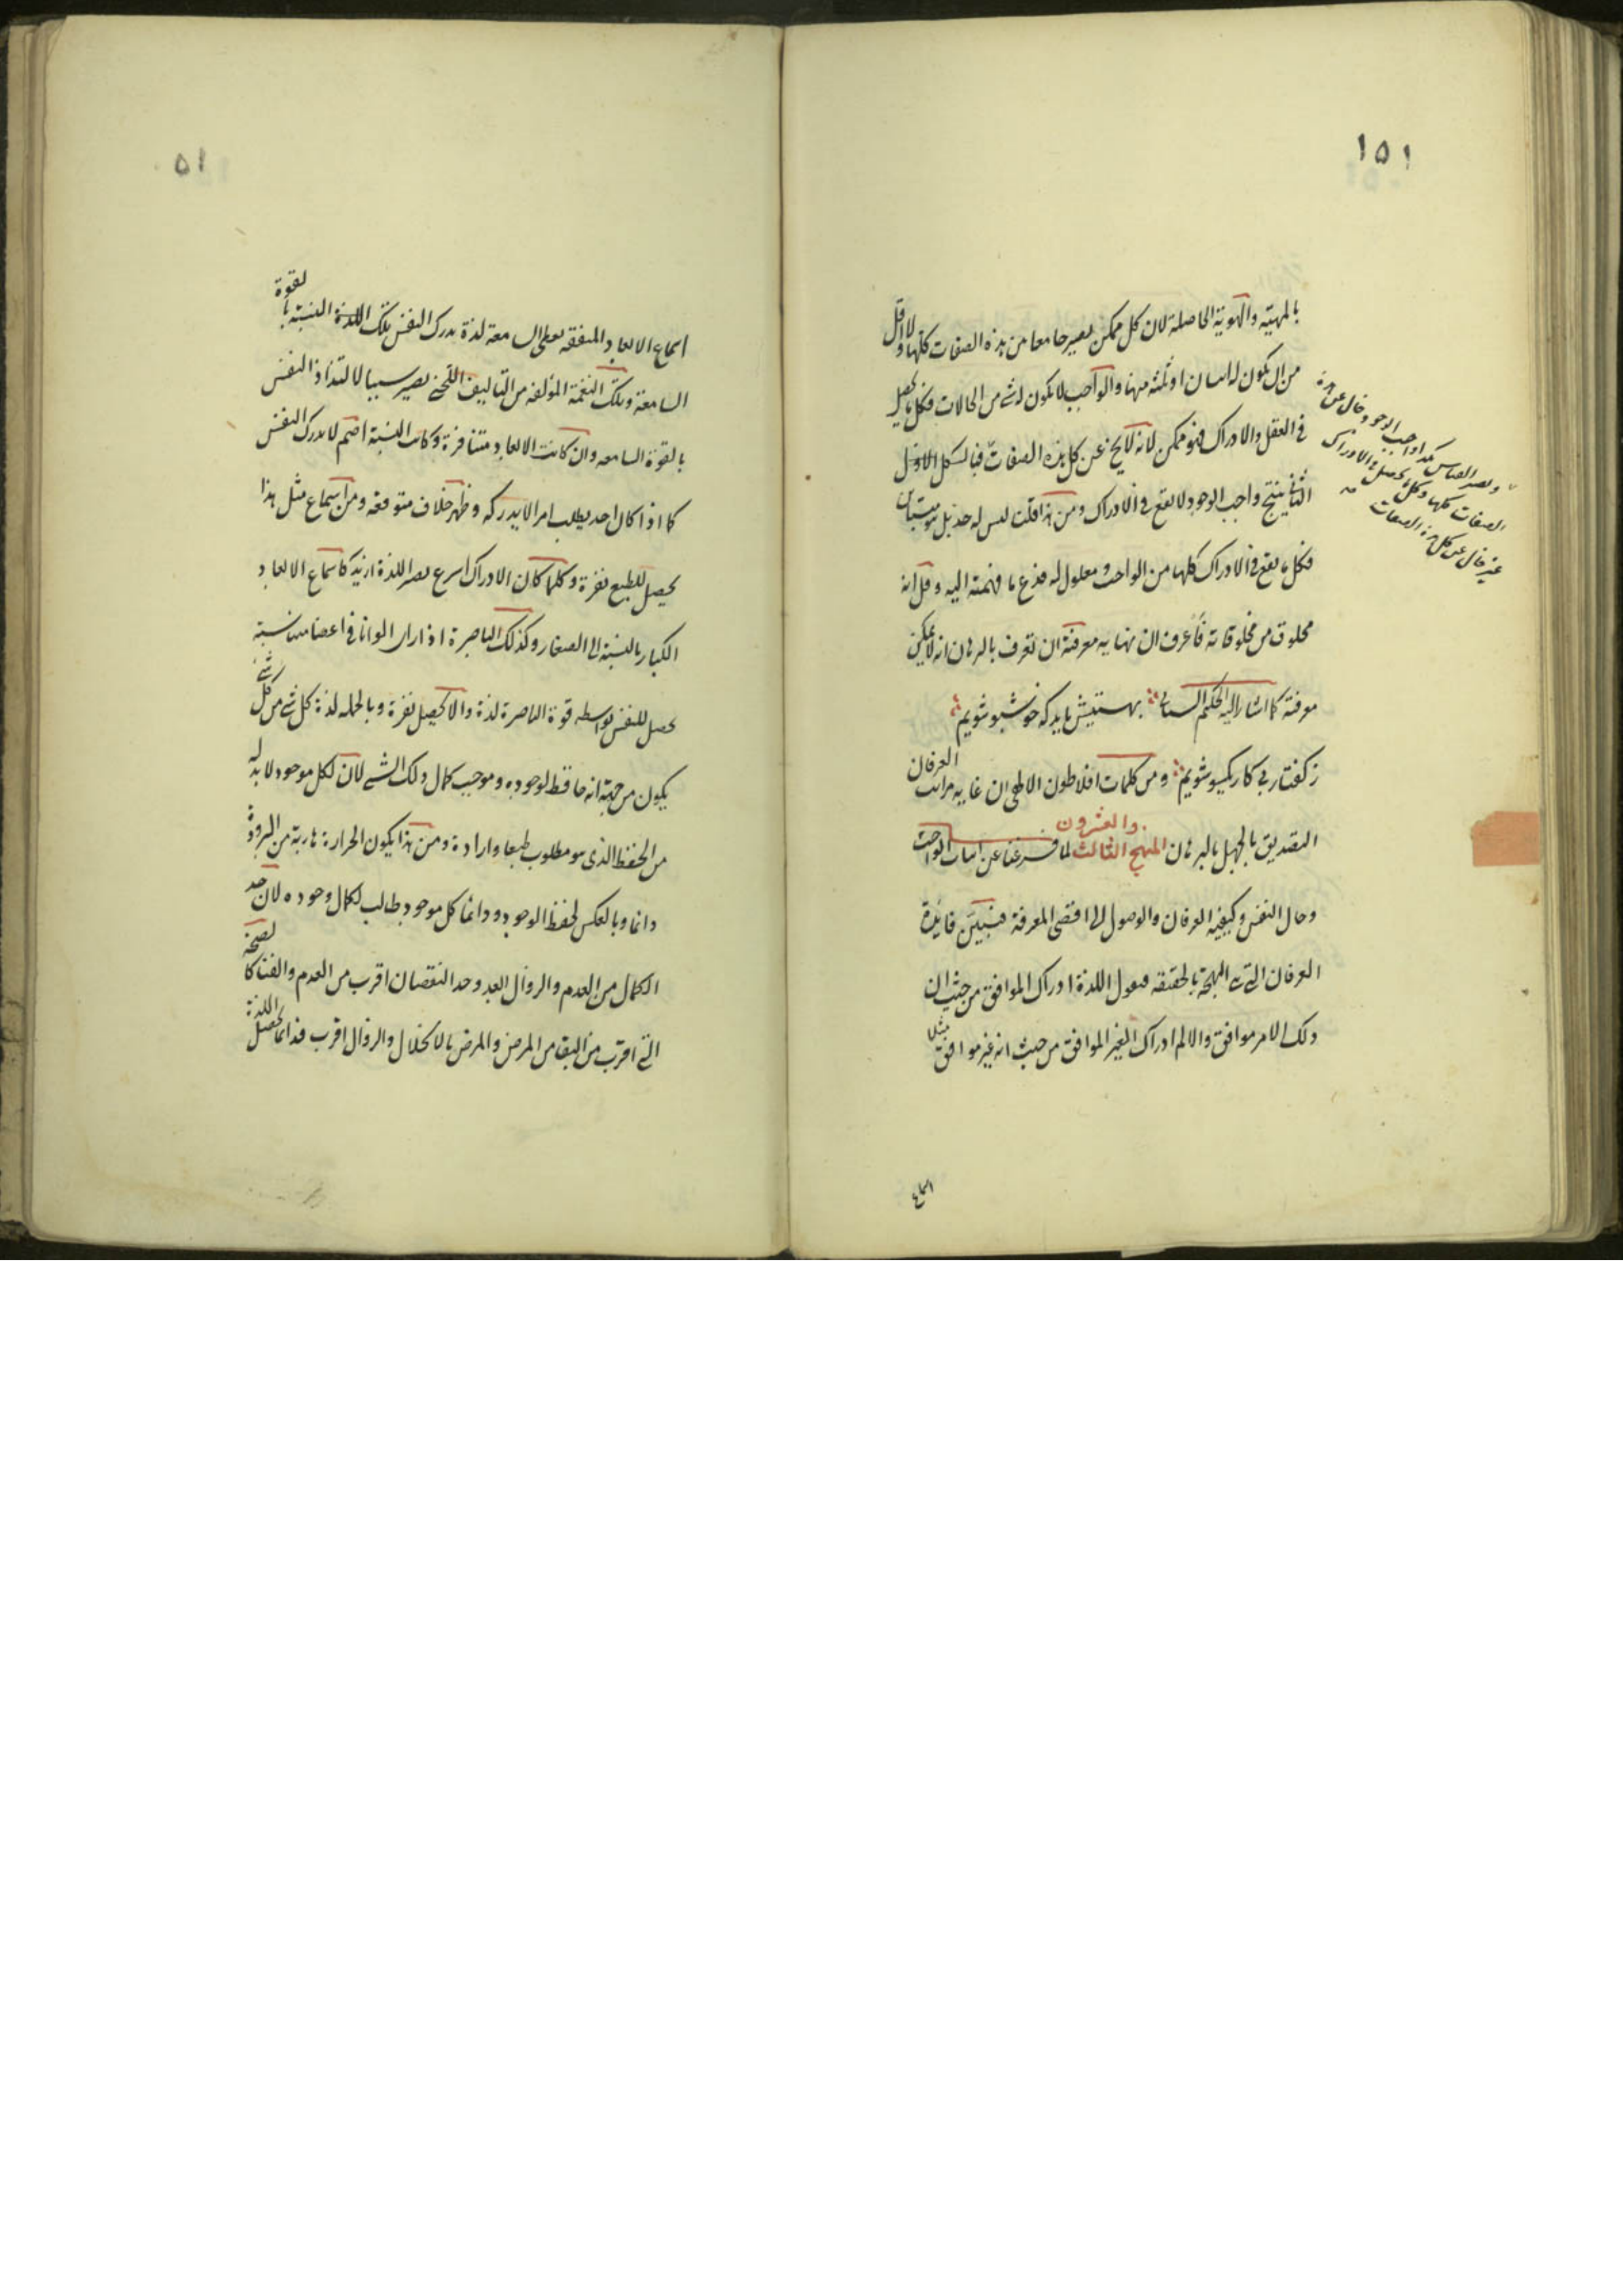 ١٥١
بالمهيّة والهويّة الحاصلة لان كل ممكن يصير جامعا من هذه الصفات كلها ولا اقل
من ان يكون له اثنان او ثلثه منها والواجب لا يكون له شئ من الحالات فكل ما يحصل
في العقل والادراك فهو ممكن لانه لا يخ عن كل هذه الصفات فبالشكل الاول
الثاني ينتج واجب الوجود لا يقع في الادراك ومن هذا قلت ليس له حد بل هو
فكل ما يقع في الادراك كلها من الواجب ومعلول له فدع ما فهمته اليه وقل انه
مخلوق من مخلوقاته فأعرف ان نهايه معرفته ان تعرف بالبرهان انه لا يمكن
معرفته كما اشار اليه الحكيم السنائي بهستيش بايد كه خوشبو شويم
ز كفتار بي كار يكسو شويم ومن كلمات افلاطون الالهي ان غايه مراتب العرفان
التصديق بالجهل بالبرهان المنهج الثالث والعشرون لما فرغنا عن اثبات الواجب
وحال النفس وكيفيه العرفان والوصول الى اقصى المعرفة فنبيّن فايدة
العرفان التي هي البهجة بالحقيقه فنقول اللذة ادراك الموافق من حيث ان
ذلك الامر موافق والالم ادراك الغير الموافق من حيث انه غير موافق مثلا
الصفات كلها وكل ما يحصل في الادراك
غير خال عن كل هذه الصفات
اسماع
٥١
اسماع الابعاد المتفقه يعطى السامعة لذة يدرك النفس تلك اللذة النسبته بالقوة
السامعة وتلك النغمة المؤلفه من التاليف اللحني يصير سببا لالتذاذ النفس
بالقوة السامعه وان كانت الابعاد متنافرة وكانت النسبة اصم لا يدرك النفس
كما اذا كان احد يطلب امرا لا يدركه وظهر خلاف متوقعه ومن اسماع مثل هذا
يحصل للطبع نفرة وكلما كان الادراك اسرع يصير اللذة ازيد كاسماع الابعاد
الكبار بالنسبة الى الصغار وكذلك الباصرة اذا راى الوانا في اعضا متناسبة
يحصل للنفس بواسطه قوة الباصرة لذة والا يحصل نفرة وبالجمله لذة كل شئ من كل شئ
يكون من جهة انه حافظ لوجوده وموجب كمال ذلك الشئ لان لكل موجود لا بد له
من الحفظ الذى هو مطلوب طبعا وارادة ومن هذا يكون الحرارة هاربة من البرودة
دائما وبالعكس لحفظ الوجود ودائما كل موجود طالب لكمال وجوده لان حد
الكمال من العدم والزوال ابعد وحد النقصان اقرب من العدم والفنا كالصحة
التي اقرب من البقا من المرض والمرض بالانحلال والزوال اقرب فدائما يحصل اللذة